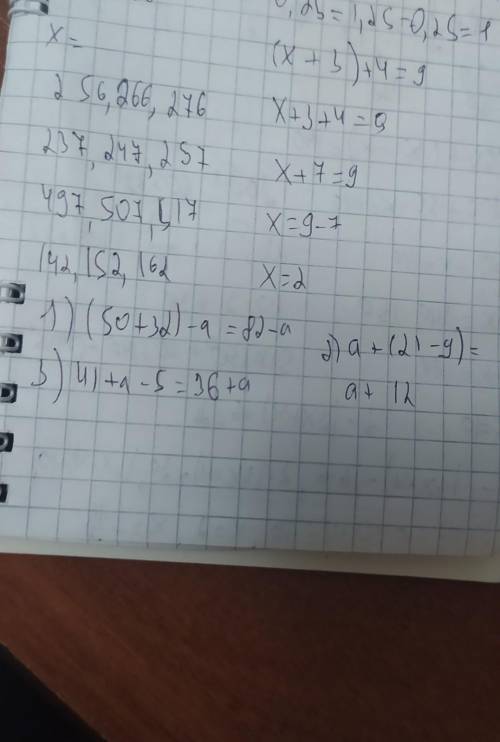 0,25=1,25-0,25=1
x=
256,266,276
237,247,257
497,507,517
142,152,162
(x+3)+4=9
x+3+4=9
x+7=9
x=9-7
x=2
1)(50+32)-a=82-a
2)a+(21-9)=
a+12
3)41+a-5=36+a